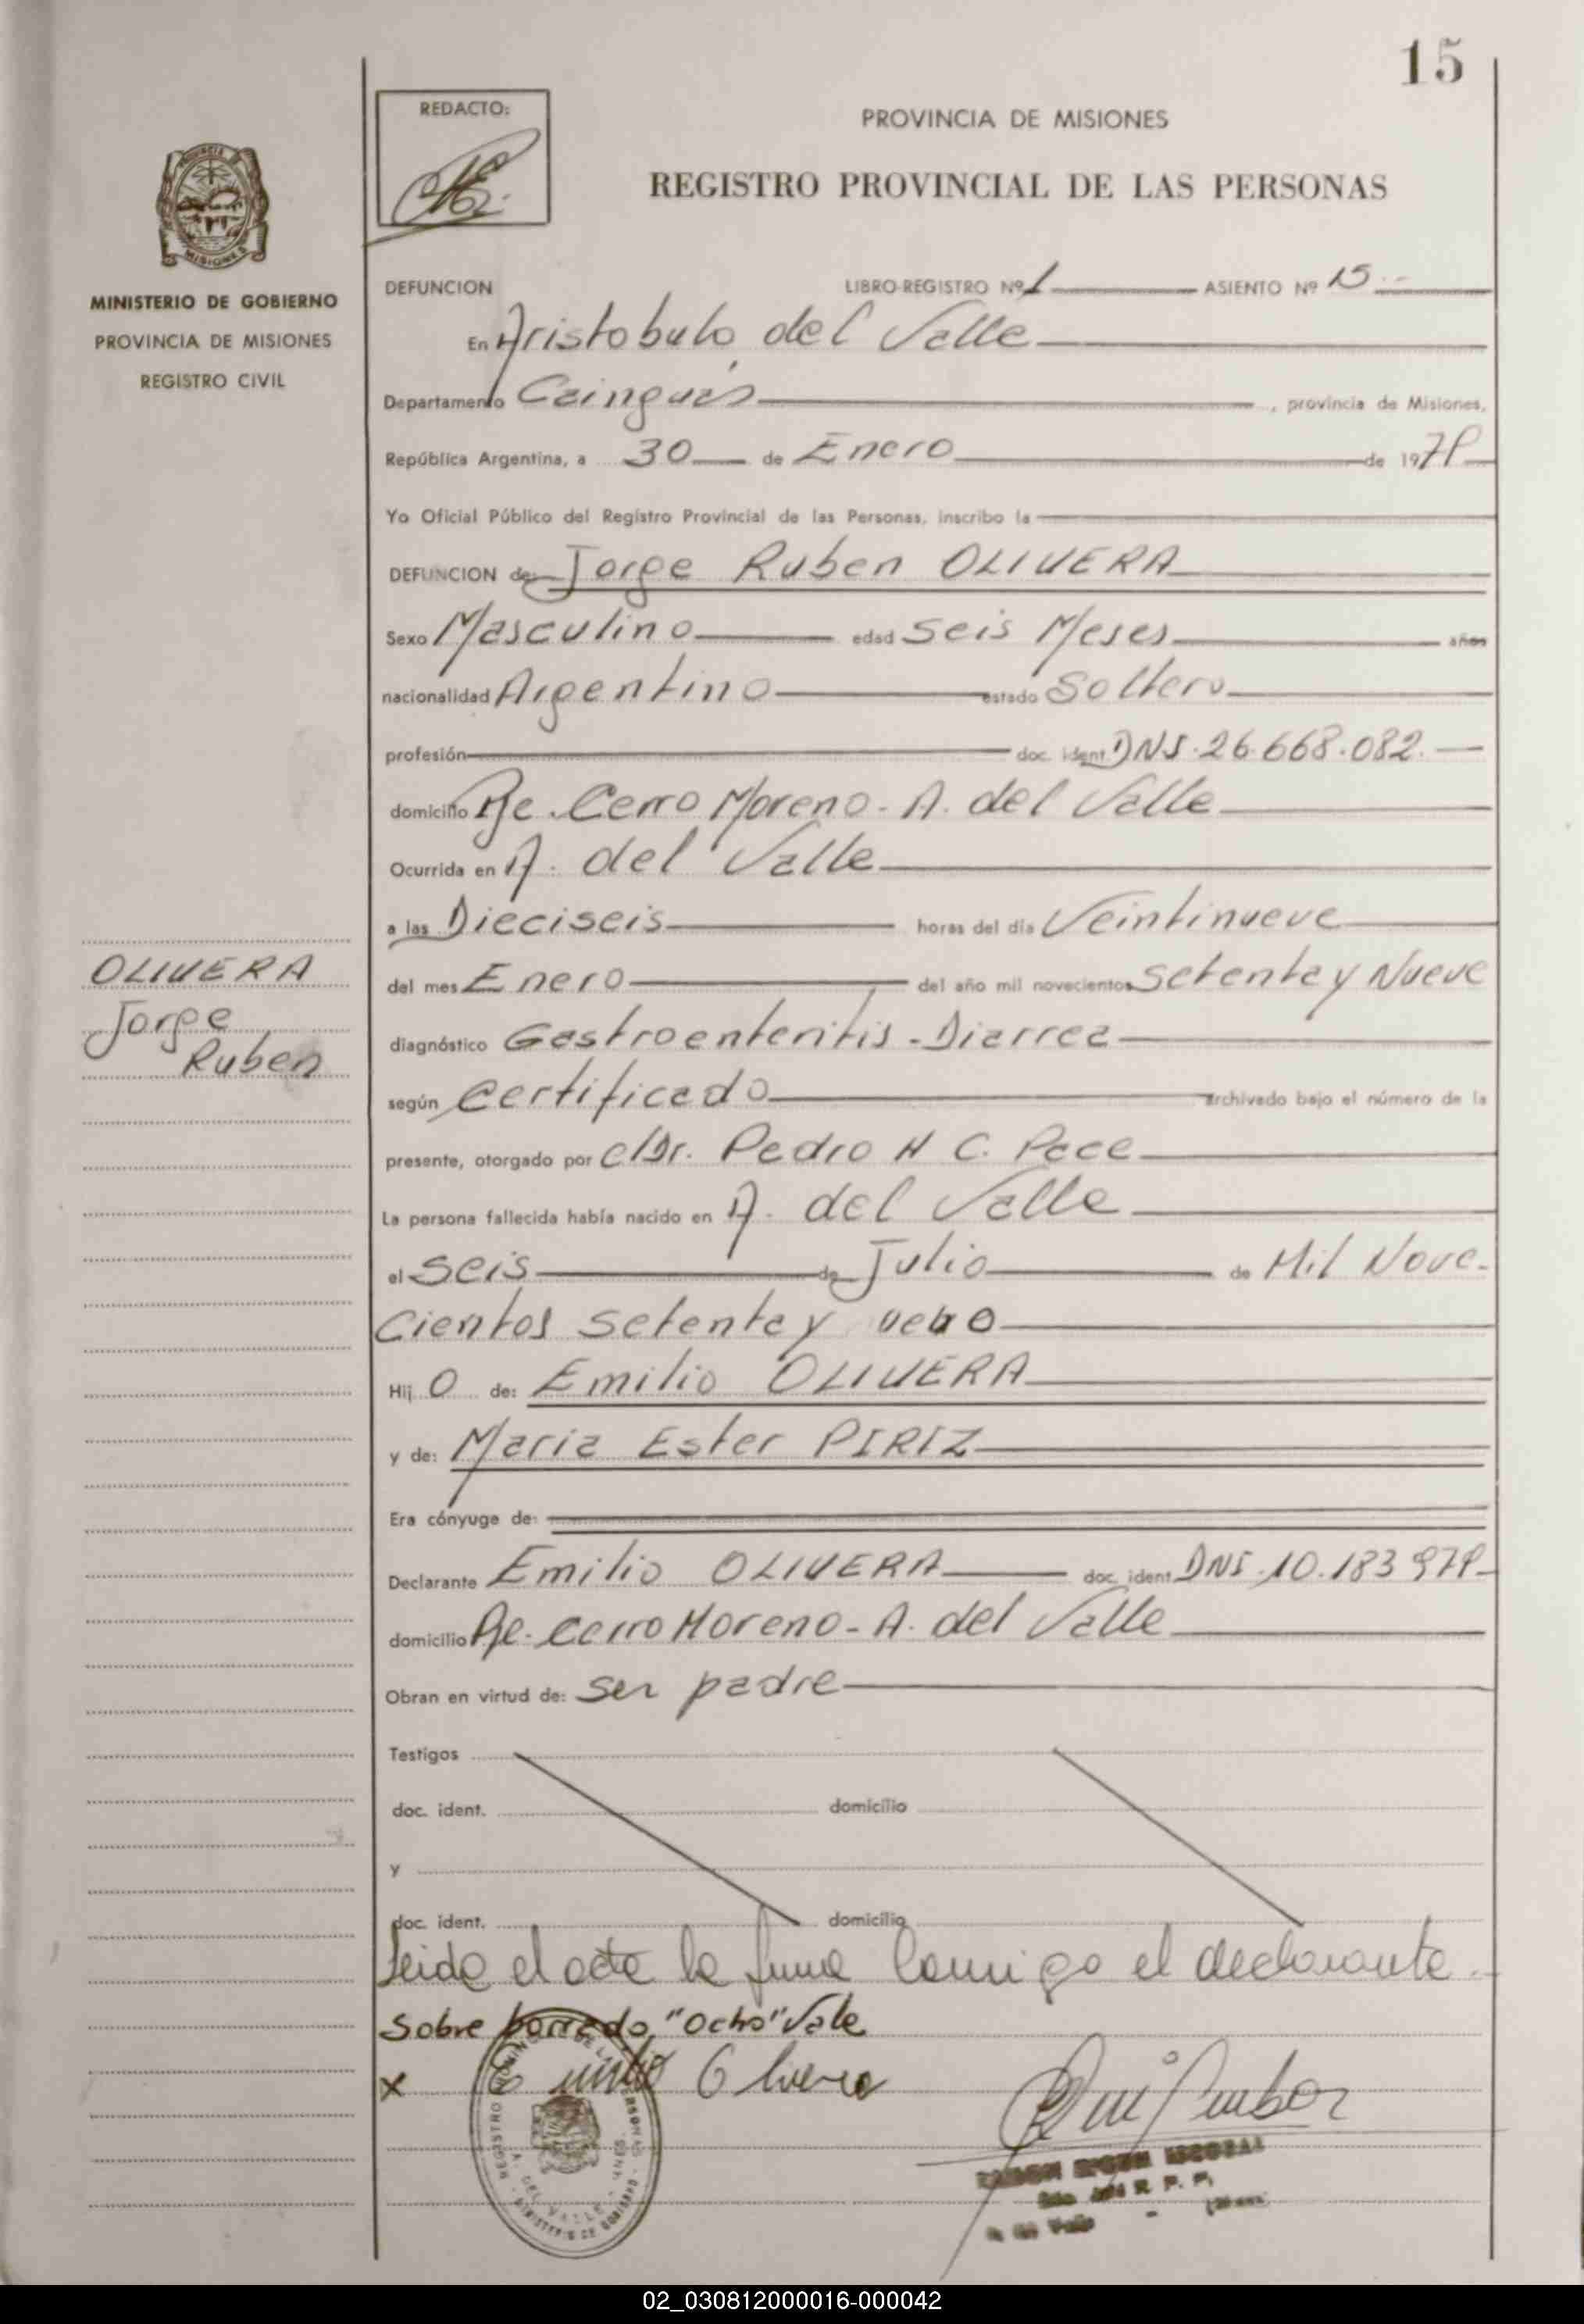 15
REDACTO:
PROVINCIA DE MISIONES
REGISTRO PROVINCIAL DE LAS PERSONAS
PROVINCIA
MISIONES
MINISTERIO DE GOBIERNO
PROVINCIA DE MISIONES
REGISTRO CIVIL
DEFUNCION LIBRO-REGISTRO Nº 1 ASIENTO Nº 15
En Aristobulo del Valle
Departamento Cainguás, provincia de Misiones,
República Argentina, a 30 de Enero de 1979
Yo Oficial Público del Registro Provincial de las Personas, inscribo la
DEFUNCION de: Jorge Ruben OLIVERA
Sexo Masculino edad Seis Meses años
nacionalidad Argentino estado Soltero
profesión doc. ident. DNI. 26.668.082.
domicilio Pje. Cerro Moreno - A. del Valle
Ocurrida en A. del Valle
a las Dieciseis horas del día Veintinueve
del mes Enero del año mil novecientos Setenta y Nueve
diagnóstico Gastroenteritis - Diarrea
según Certificado archivado bajo el número de la
presente, otorgado por el Dr. Pedro H C. Pace
La persona fallecida había nacido en A. del Valle
el Seis de Julio de Mil Nove-
Cientos Setenta y ocho
Hij o de: Emilio OLIVERA
y de: Maria Ester PIRIZ
Era cónyuge de:
Declarante Emilio OLIVERA doc. ident. DNI. 10.183.979
domicilio Pje. Cerro Moreno - A. del Valle
Obran en virtud de: Ser padre
Testigos
doc. ident. domicilio
y
doc. ident. domicilio
Leida el acta la firma conmigo el declarante.
Sobre borrado, "Ocho" Vale
x Emilio Olivera
OLIVERA
Jorge
Ruben
A. DEL VALLE
MINISTERIO DE GOBIERNO
R. P. P.
02_030812000016-000042